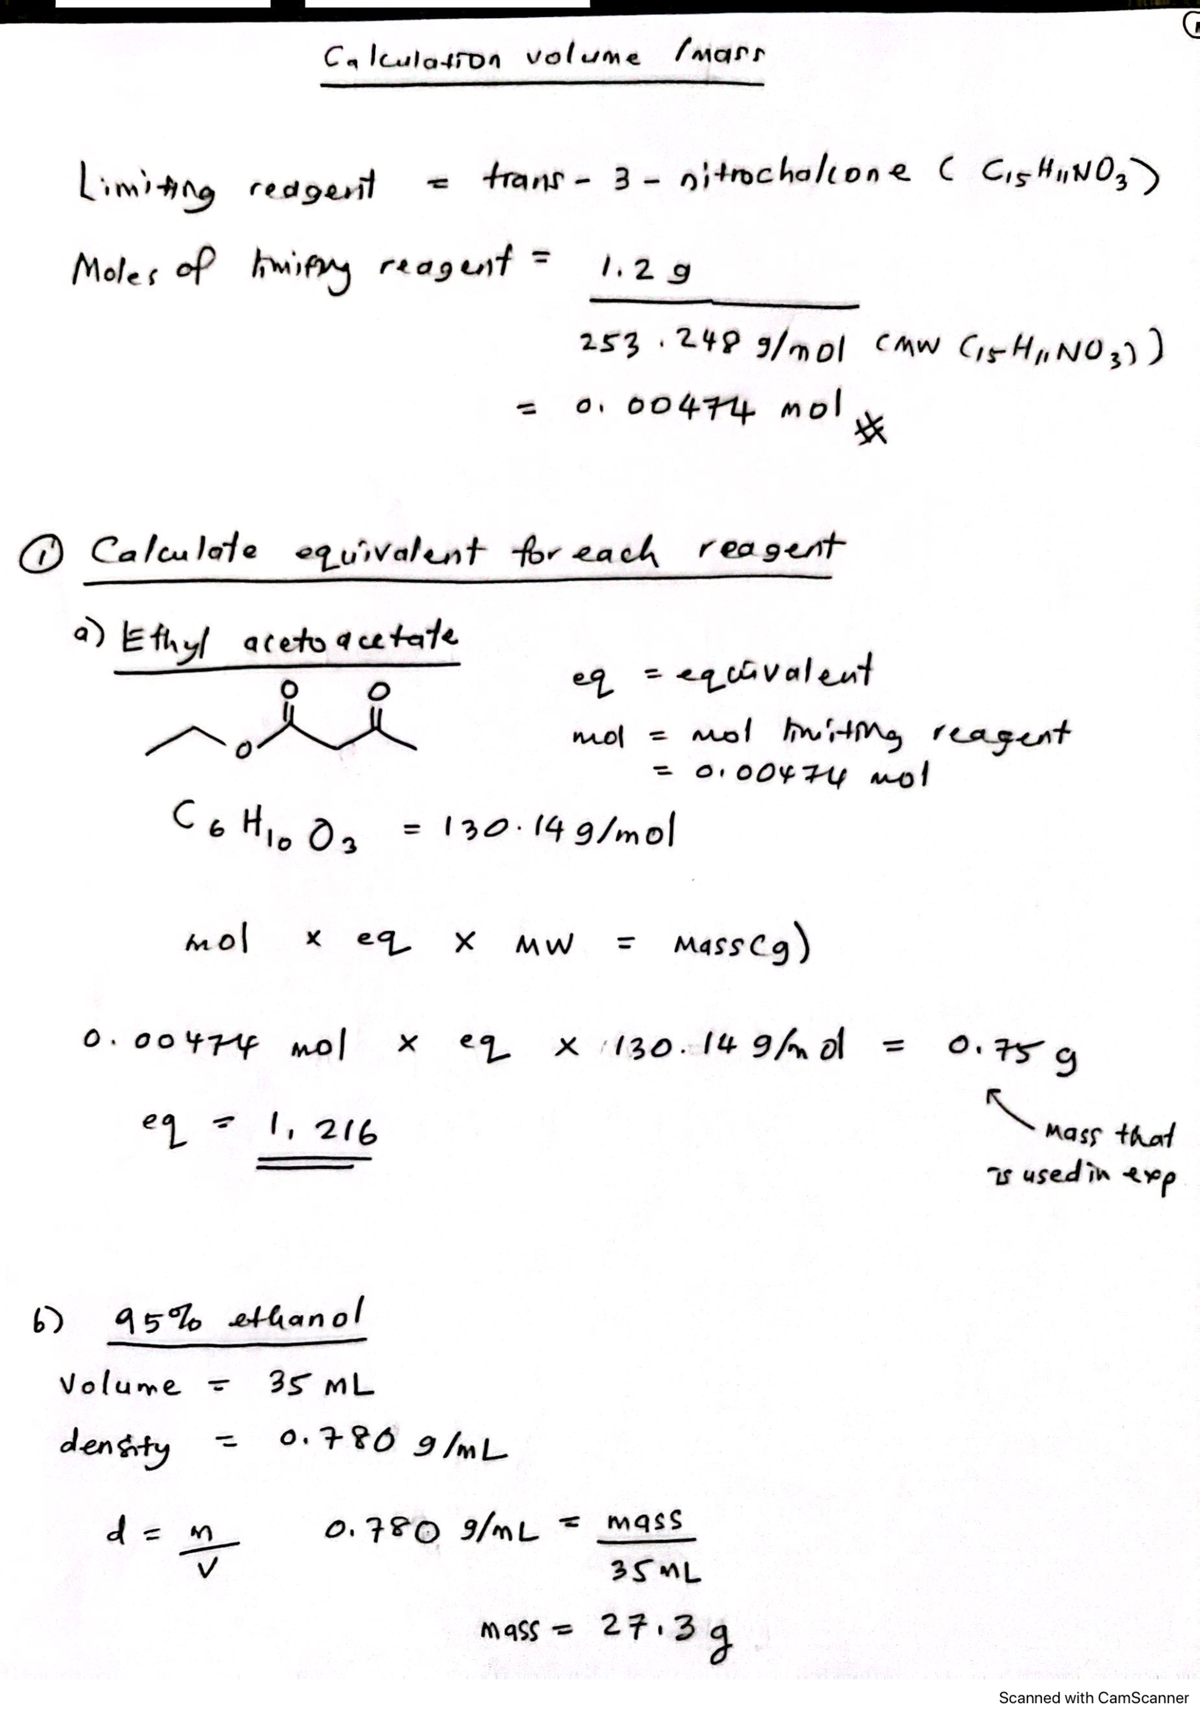 Calculation volume /mass
Limiting reagent = trans - 3 - nitrochalcone ( C15H11NO3)
Moles of limiting reagent = 1.2 g
253.248 g/mol (MW C15H11NO3))
= 0.00474 mol
① Calculate equivalent for each reagent
a) Ethyl acetoacetate
eq = equivalent
O O
O
mol = mol limiting reagent
= 0.00474 mol
C6H10O3 = 130.14 g/mol
mol x eq x MW = Mass(g)
0.00474 mol x eq x 130.14 g/mol = 0.75 g
eq = 1.216
Mass that
is used in exp
b) 95% ethanol
Volume = 35 mL
density = 0.780 g/mL
d = m/v 0.780 g/mL = mass
35 mL
mass = 27.3 g
Scanned with CamScanner